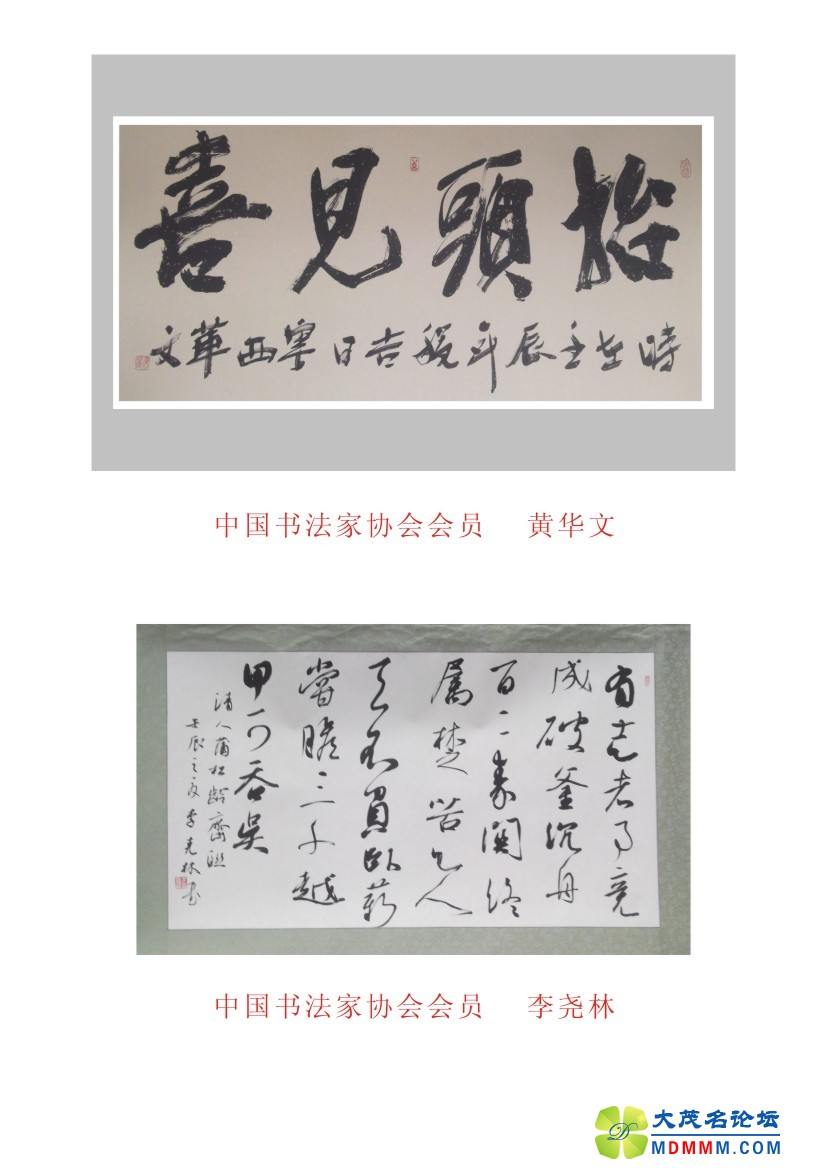 抬頭見喜
時在壬辰年秋吉日粵西華文
中国书法家协会会员 黄华文
有志者事竟
成破釜沉舟
百二秦關終
属楚苦心人
天不負卧薪
嘗瞻三千越
甲可吞吴
清人蒲松龄斋联
壬辰之夏李尧林书
中国书法家协会会员 李尧林
大茂名论坛
MDMMM.COM